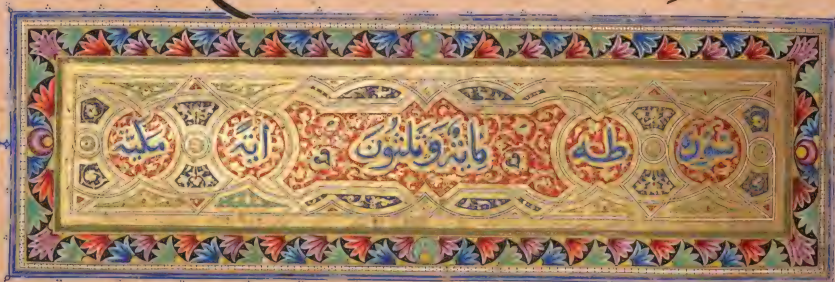 سورة طه ماية وثلثون اية مكية